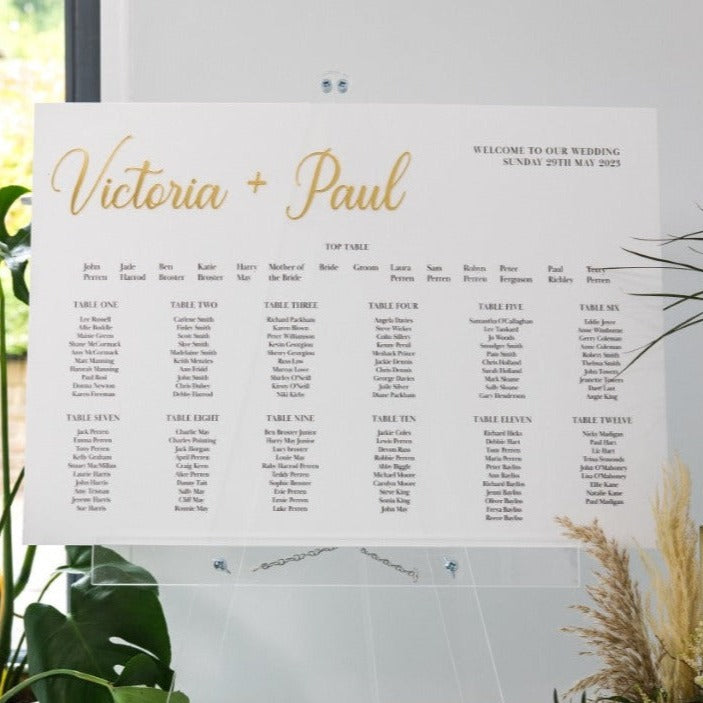 Victoria + Paul
WELCOME TO OUR WEDDING
SUNDAY 29TH MAY 2023
TOP TABLE
John Perren
Jade Harrod
Ben Broster
Katie Broster
Harry May
Mother of the Bride
Bride
Groom
Laura Perren
Sam Perren
Robyn Perren
Peter Ferguson
Paul Richley
Terry Perren
TABLE ONE
Lee Russell
Alfie Boddle
Maisie Green
Shane McCormack
Ann McCormack
Matt Manning
Hannah Manning
Paul Rosi
Donna Newton
Karen Freeman
TABLE TWO
Carlene Smith
Finley Smith
Scott Smith
Skye Smith
Madelaine Smith
Keith Menzies
Ann Feidd
John Smith
Chris Dubey
Debbie Kirby
TABLE THREE
Richard Packham
Karen Blown
Peter Williamson
Kevin Georgiou
Sherry Georgiou
Russ Low
Marcus Lowe
Shirley O'Neill
Kirsty O'Neill
Niki Kirby
TABLE FOUR
Angela Davies
Steve Wickes
Colin Sillers
Kenny Perrell
Meshack Prince
Jackie Dennis
Chris Dennis
George Davies
Jolie Silver
Diane Packham
TABLE FIVE
Samantha O'Callaghan
Lee Tankard
Jo Woods
Smudger Smith
Pam Smith
Chris Holland
Sarah Holland
Mark Sloane
Sally Sloane
Gary Henderson
TABLE SIX
Eddie Joyce
Anne Winbourne
Gerry Coleman
Anne Coleman
Robert Smith
Thelma Smith
John Towers
Jeanette Towers
Dave Last
Angie King
TABLE SEVEN
Jack Perren
Emma Perren
Tony Perren
Kelly Graham
Stuart MacMillan
Laurie Harris
John Harris
Amy Tristan
Jerome Harris
Sue Harris
TABLE EIGHT
Charlie May
Charles Pointing
Jack Horgan
April Perren
Craig Keen
Alice Perren
Danny Tait
Sally May
Cliff Mac
Ronnie May
TABLE NINE
Ben Broster Junior
Harry May Junior
Lucy broster
Louie May
Ruby Harrod Perren
Teddy Perren
Sophie Broster
Eric Perren
Ernie Perren
Luke Perren
TABLE TEN
Jackie Coles
Lewis Perren
Devon Russ
Robbie Perren
Abby Biggle
Michael Moore
Carolyn Moore
Steve King
Sonia King
John May
TABLE ELEVEN
Richard Hicks
Debbie Hart
Tony Perren
Maria Perren
Peter Bayliss
Ann Bayliss
Richard Bayliss
Jenni Bayliss
Oliver Bayliss
Freya Bayliss
Reece Bayliss
TABLE TWELVE
Nicky Madigan
Paul Hart
Liz Hart
Trina Symonds
John O'Mahoney
Lisa O'Mahoney
Ellie Kane
Natalie Kane
Paul Madigan